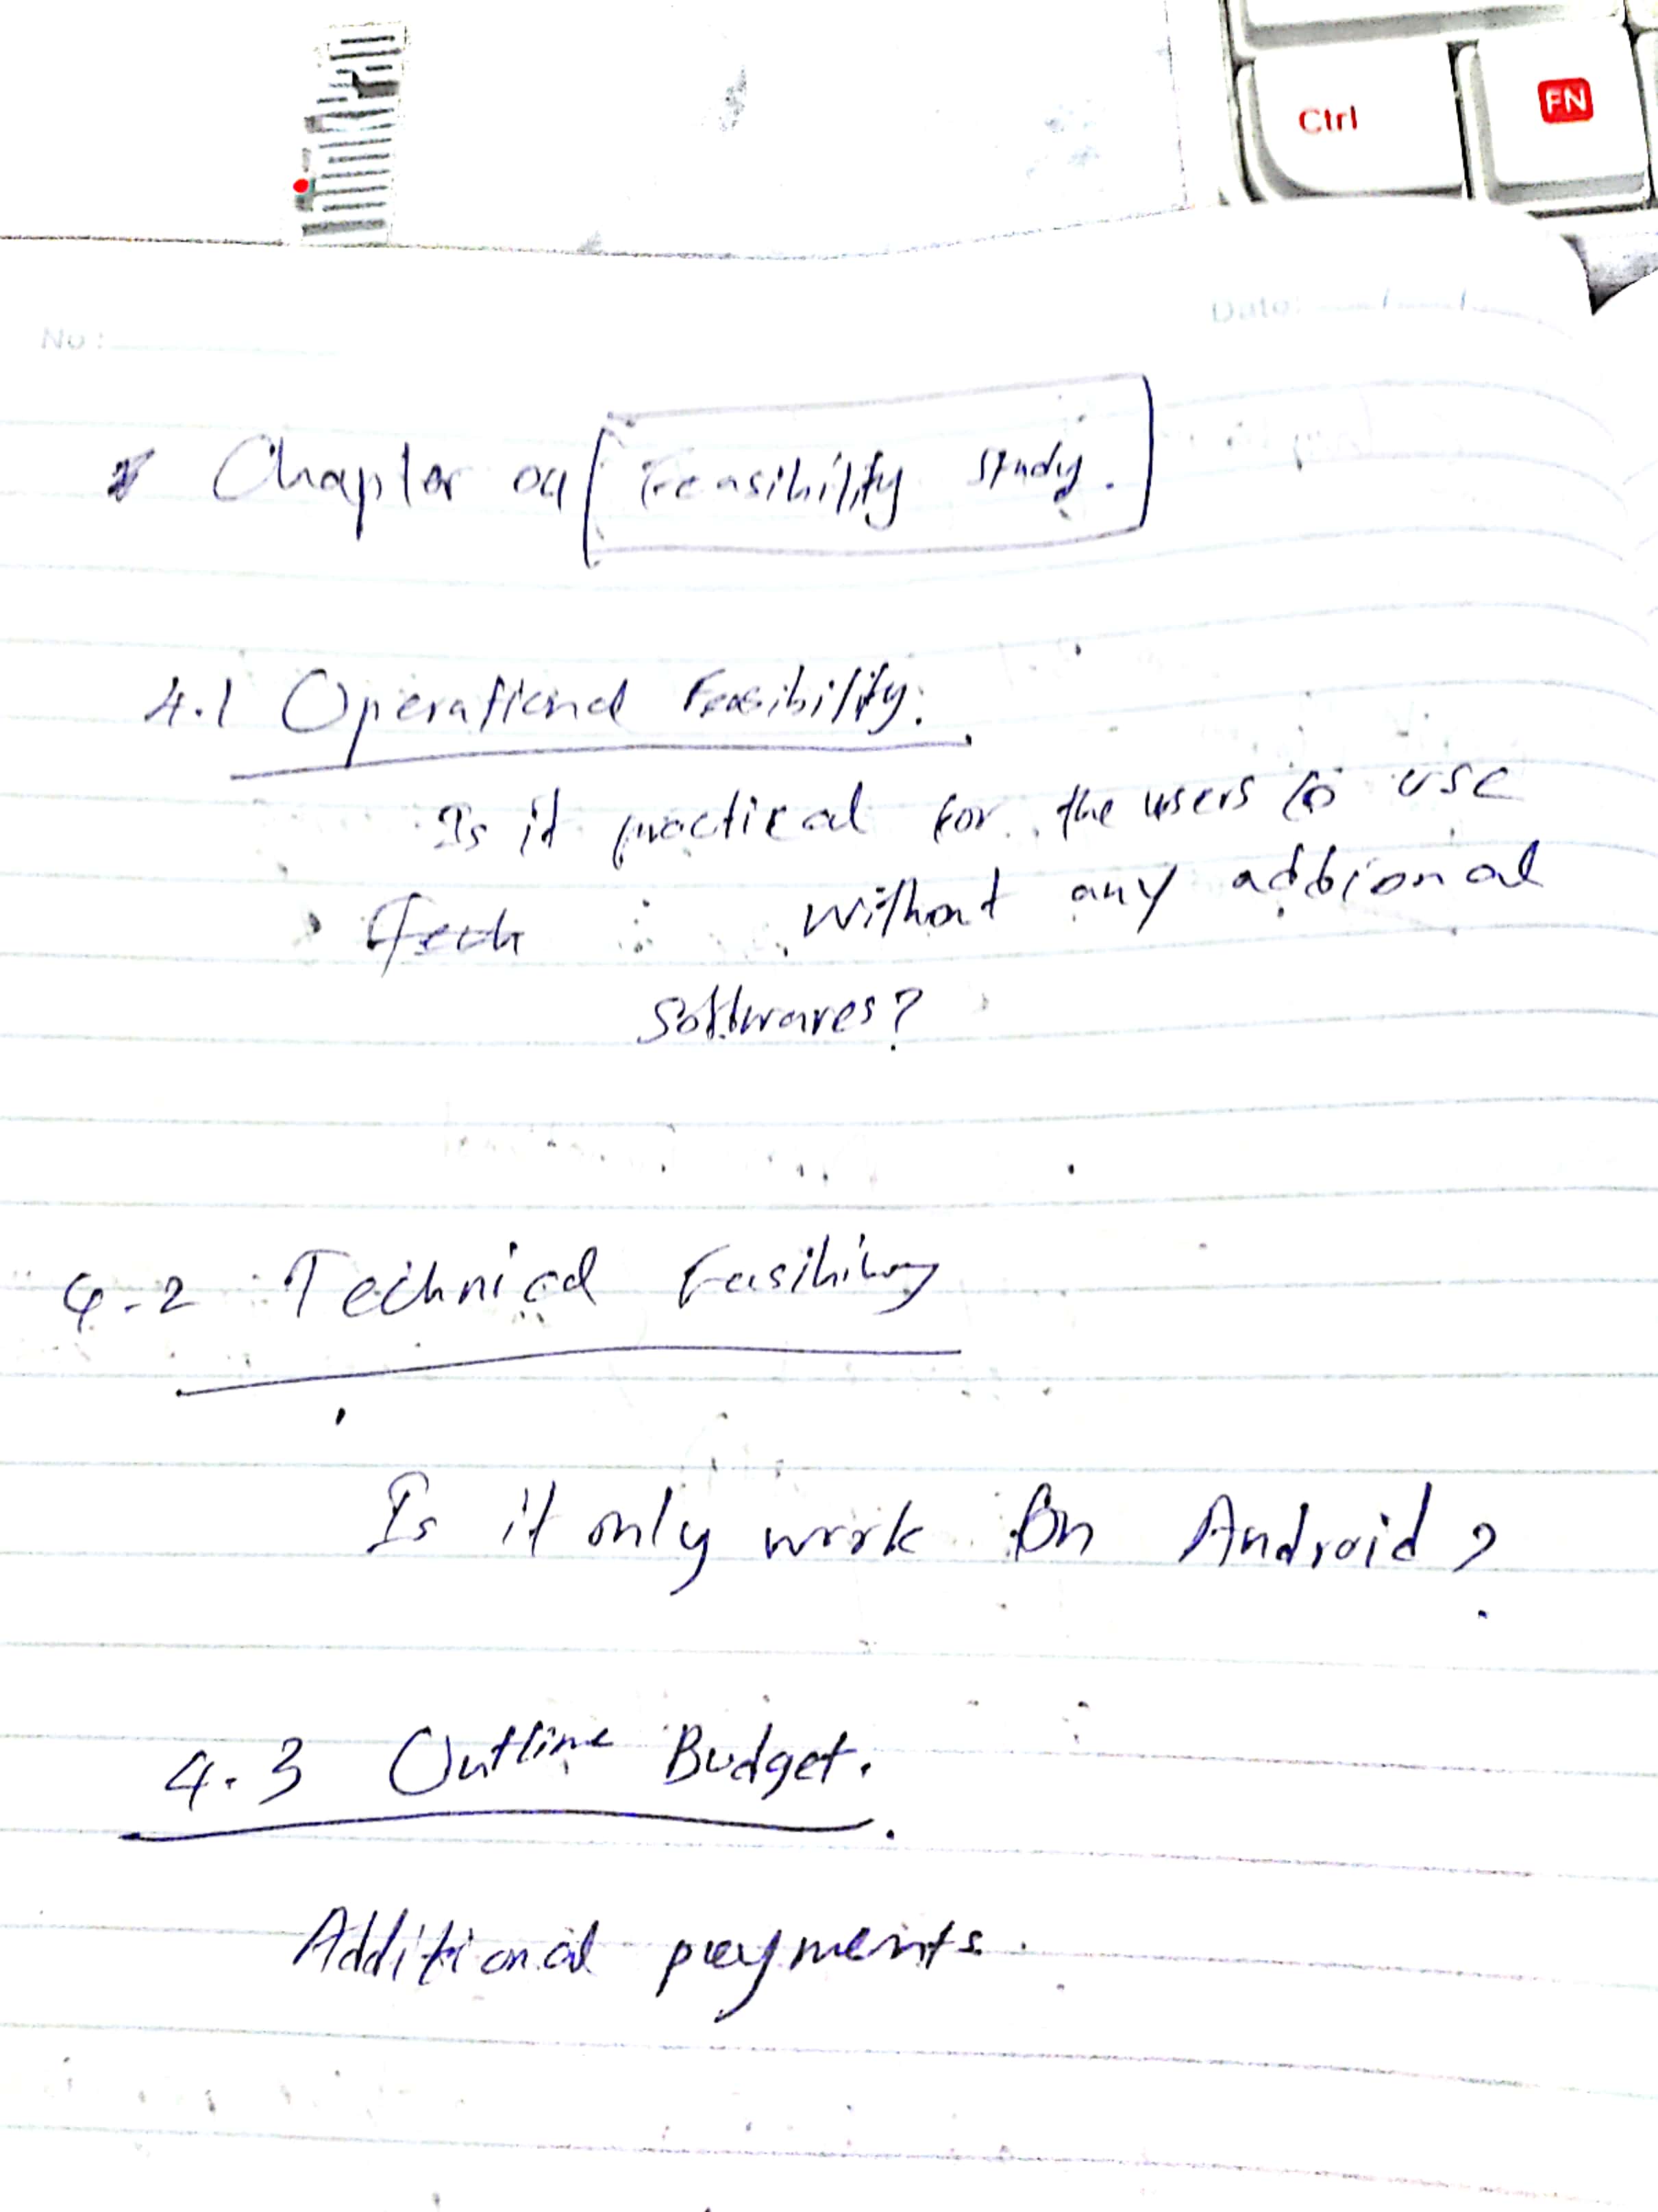 Ctrl
FN
No:
Date:
Chapter 04 Feasibility study.
4.1 Operational Feasibility.
Is it practical for the users to use
Tech without any addional
softwares?
4.2 Technical Feasibility
Is it only work On Android?
4.3 Outline Budget.
Additional payments.